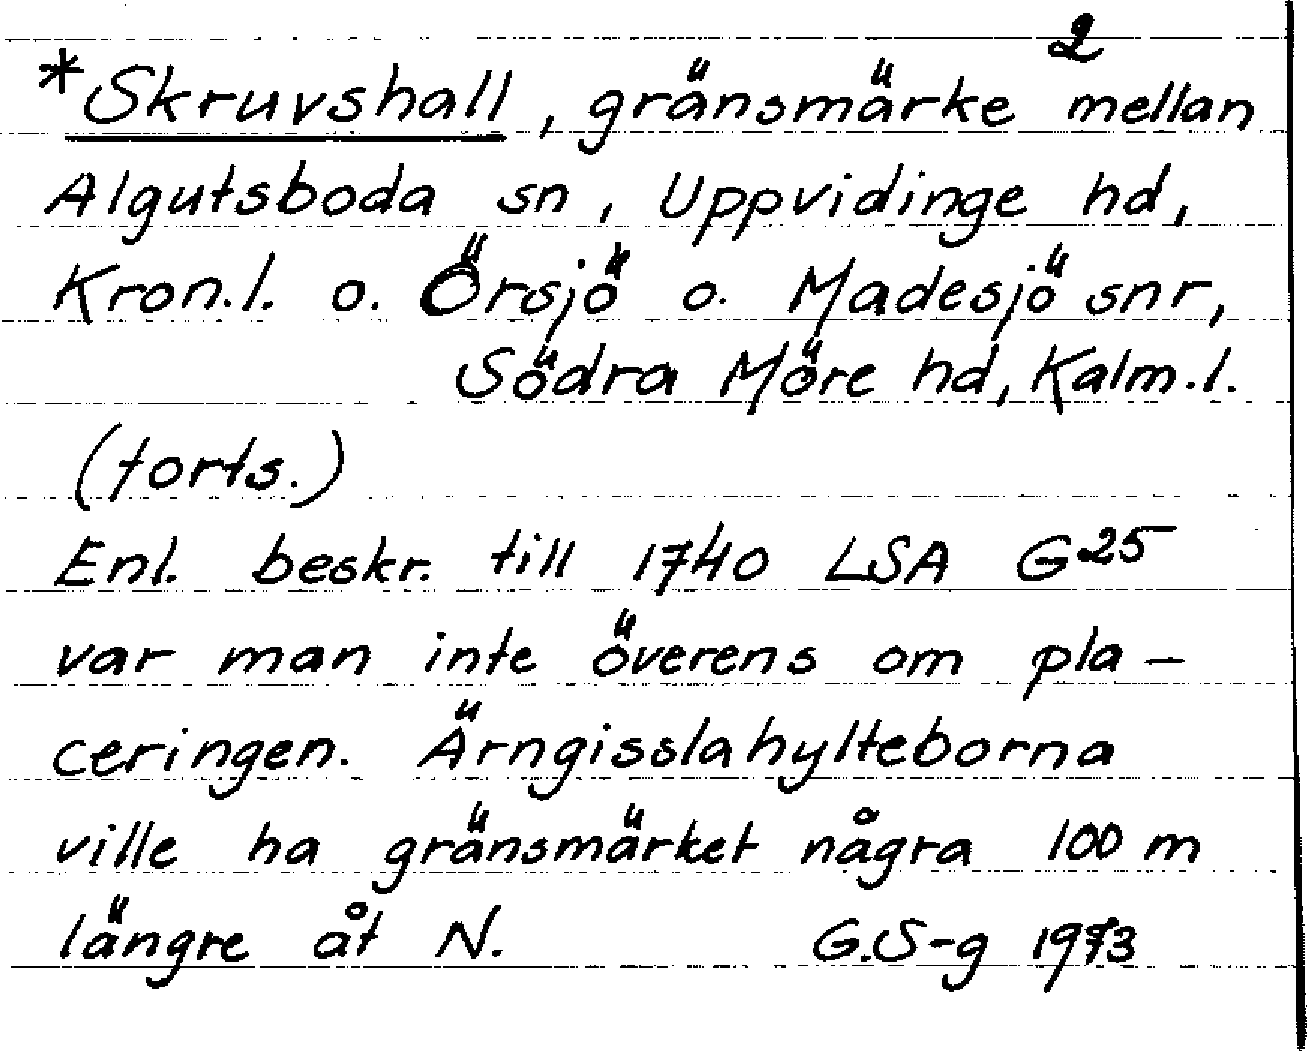 2
*Skruvshall, gränsmärke mellan
Algutsboda sn, Uppvidinge hd,
Kron.l. o. Örsjö o. Madesjö snr,
Södra Möre hd, Kalm.l.
(forts.)
Enl. beskr. till 1740 LSA G25
var man inte överens om pla-
ceringen. Ärngisslahylteborna
ville ha gränsmärket några 100 m
längre åt N. G.S-g 1973